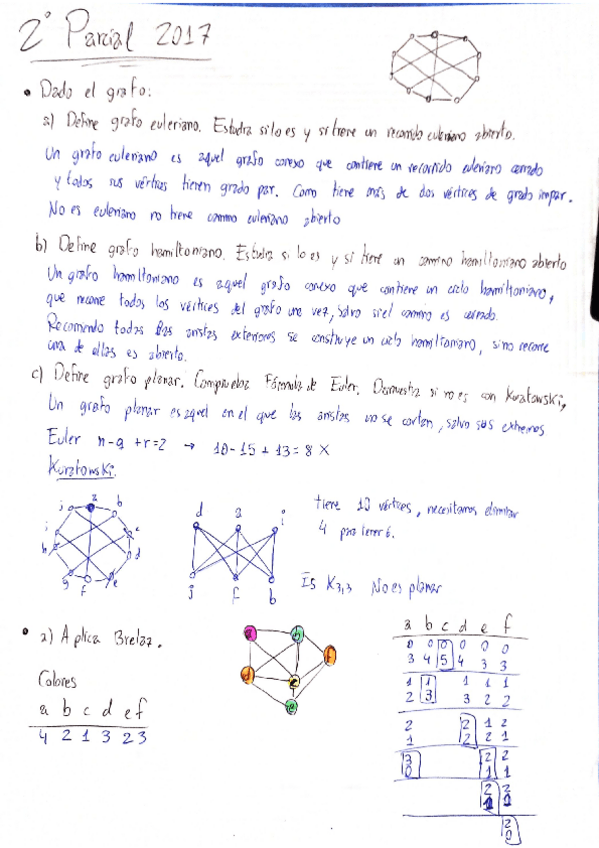 2º Parcial 2017
• Dado el grafo:
a) Define grafo euleriano. Estudia si lo es y si tiene un recorrido euleriano abierto.
Un grafo euleriano es aquel grafo conexo que contiene un recorrido euleriano cerrado
y todos sus vértices tienen grado par. Como tiene más de dos vértices de grado impar.
No es euleriano no tiene camino euleriano abierto
b) Define grafo hamiltoniano. Estudia si lo es y si tiene un camino hamiltoniano abierto
Un grafo hamiltoniano es aquel grafo conexo que contiene un ciclo hamiltoniano,
que recorre todos los vértices del grafo una vez, salvo si el camino es cerrado.
Recorriendo todas las aristas exteriores se construye un ciclo hamiltoniano, si no recorre
una de ellas es abierto.
c) Define grafo planar. Comprueba Fórmula de Euler. Demuestra si no es con Kuratowski,
Un grafo planar es aquel en el que las aristas no se cortan, salvo sus extremos
Euler n-a+r=2 → 10-15+13=8 X
Kuratowski.
a
j b
i c
h d
g f e
d a i
j f b
tiene 10 vértices, necesitamos eliminar
4 para tener 6.
Is K3,3 No es planar
• a) Aplica Brelaz.
Colores
a b c d e f
4 2 1 3 2 3
a b
d c f
e
a b c d e f
0 0 0 0 0 0
3 4 5 4 3 3
1 1 1 1 1
2 3 3 2 2
2 2 1 2
1 2 2 1
3 2 2
0 1 1
2 2
2
0